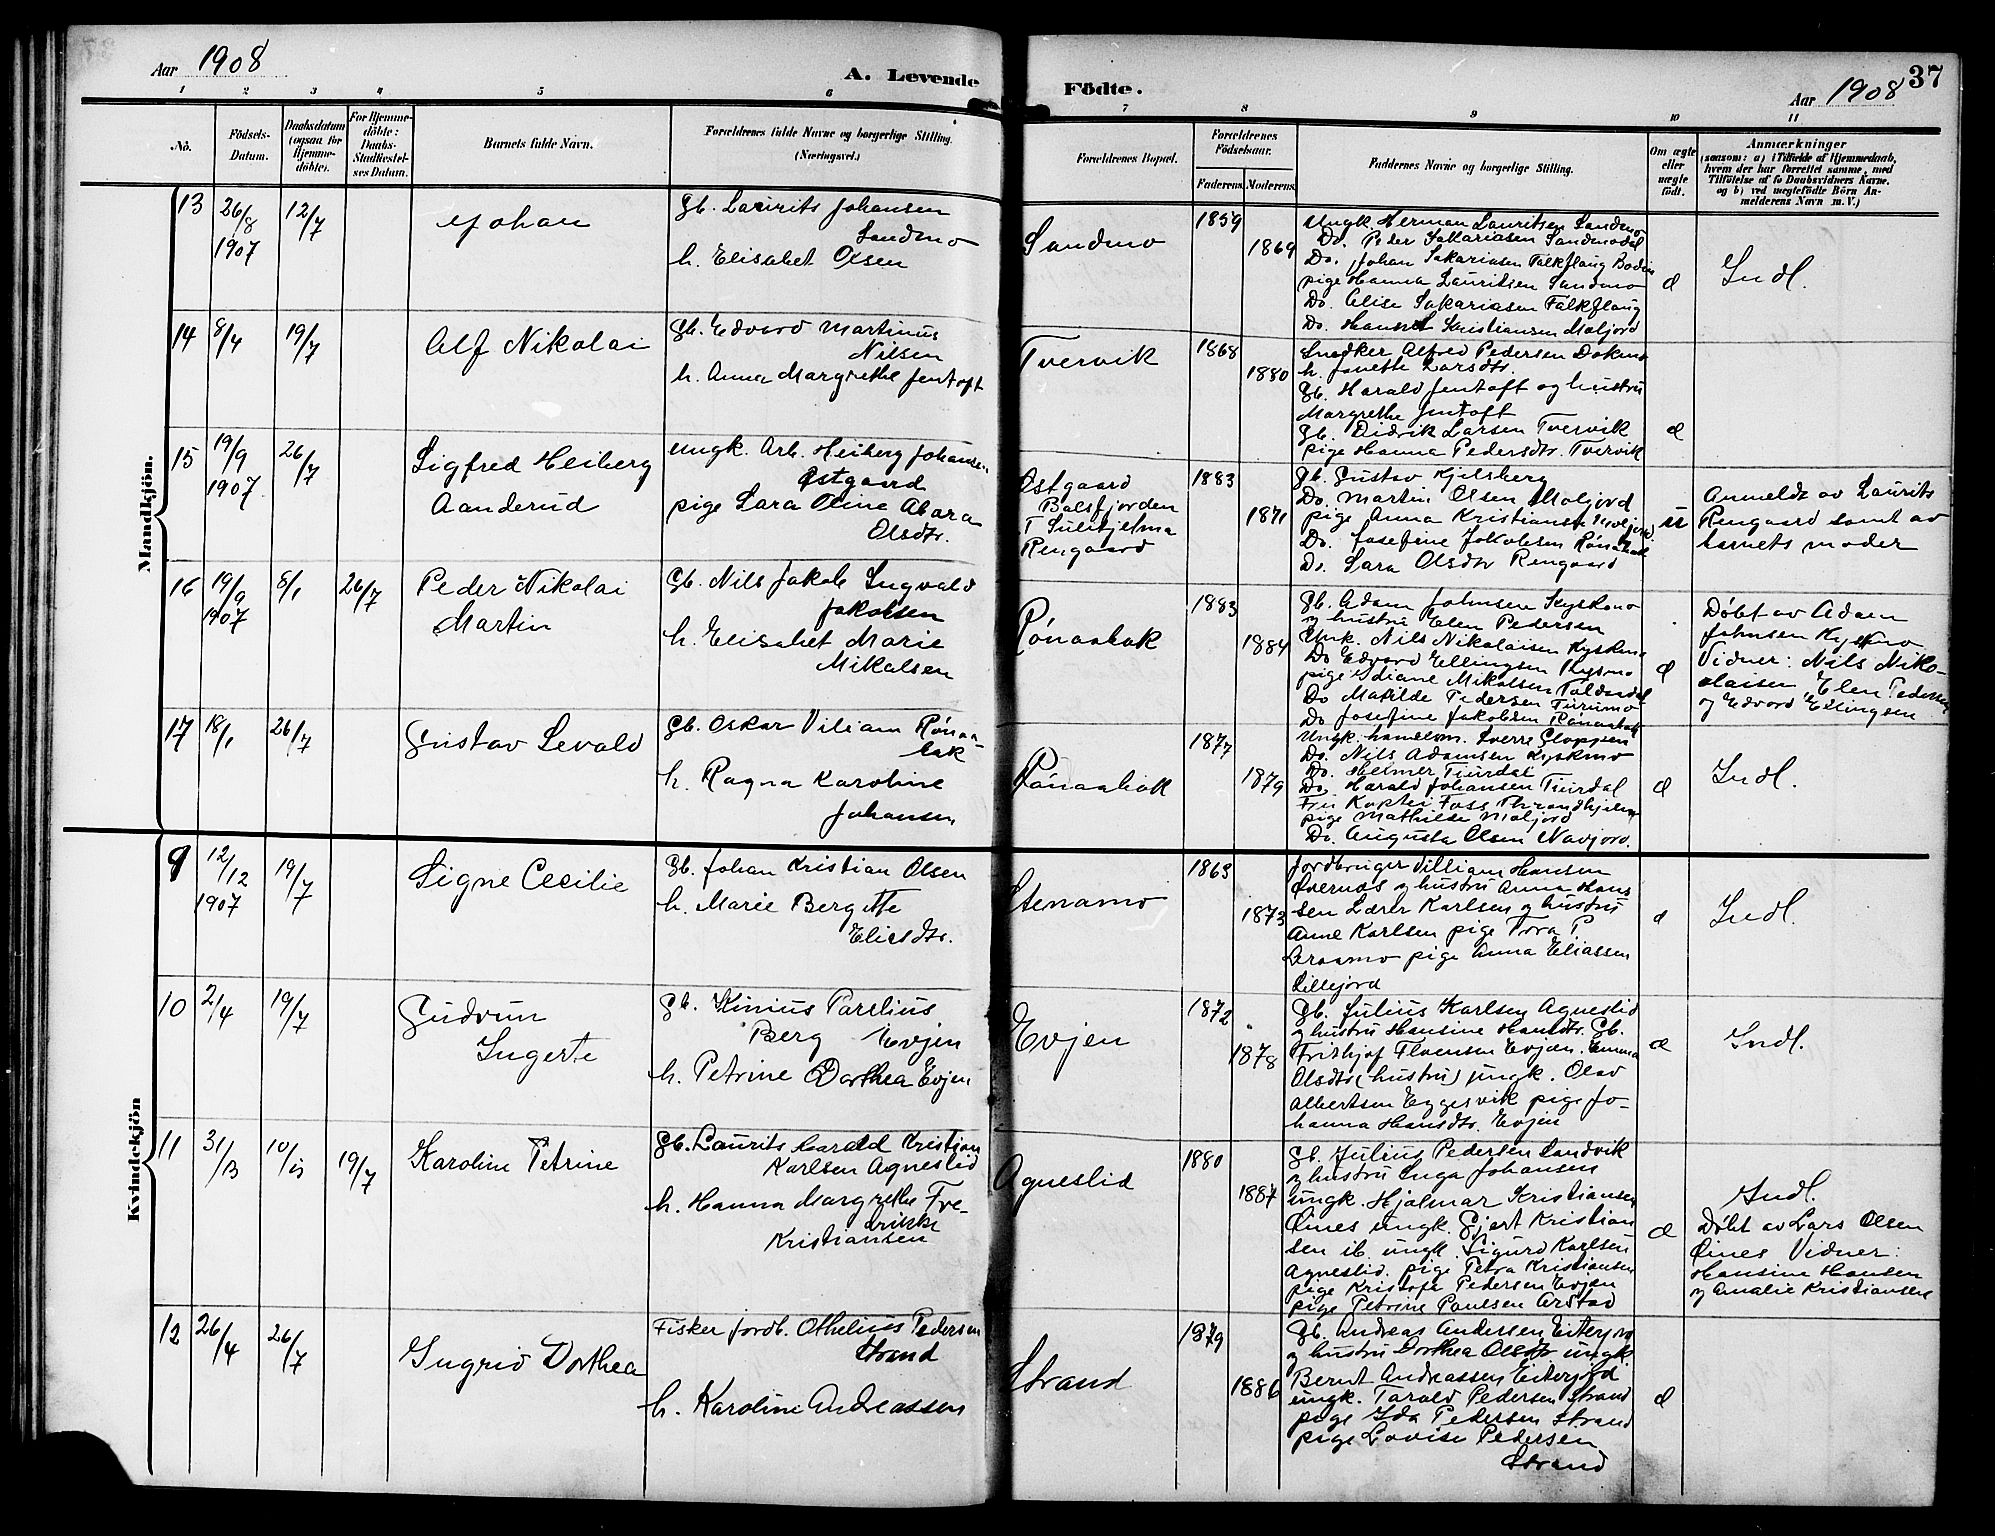 Aar 1908
A. Levende Födte.
Aar 1908
37
1 2 3 4 5 6 7 8 9 10 11
No.
Födsels-
Datum.
Daabsdatum
(ogsaa for
Hjemme-
döbte).
For Hjemme-
döbte:
Daabs-
Stadfæstel-
ses Datum.
Barnets fulde Navn.
Forældrenes fulde Navne og borgerlige Stilling.
(Næringsvei.)
Forældrenes Bopæl.
Forældrenes
Födselsaar.
Faderens. Moderens.
Faddernes Navne og borgerlige Stilling.
Om ægte
eller
uægte
födt.
Anmærkninger
(saasom: a) i Tilfælde af Hjemmedaab,
hvem der har forrettet samme, med
Tilföielse af to Daabsvidners Navne,
og b) ved uægtefödte Börn An-
melderens Navn m. V.)
Mandkjön.
13
26/8
1907
12/7
Johan
Gb. Laurits Johansen
Sandmo
h. Elisabet Olsen
Sandmo
1859
1869
Ungk. Herman Lauritsen Sandmo
Do. Peder Sakariasen Sandmodal
Do. Johan Sakariasen Falkflaug Bodin
pige Hanna Lauritsen Sandmo
Do. Elise Sakariasen Falkflaug
Do. Hanna Kristiansen Moljord
Indl.
14
19/7
Alf Nikolai
Gb. Edvard Martinus
Nilsen
h. Anna Margrethe Jentoft
Tvervik
1868
1880
Snedker Alfred Pedersen Dokmo
h. Janette Larsdtr.
Gb. Harald Jentoft og hustru
Margrethe Jentoft
Gb. Didrik Larsen Tvervik
pige Hanna Pedersdtr. Tvervik
15
19/9
1907
26/7
Sigfred Heiberg
Aanderud
Ungk. Arb. Heiberg Johansen
Østgaard
pige Sara Oline Abara
Olsdtr.
Østgaard
Balsfjorden
T. Sulitjelma
Rengaard
1883
1871
Gb. Gustav Kjelsberg
Do. Martin Olsen Moljord
pige Anna Kristianse Moljord
Do. Josefine Jakobsen Rønaabak
Do. Sara Olsdtr Rengaard
u
Anmeldt av Laurits
Rengaard samt av
barnets moder
16
19/9
1907
8/1
26/7
Peder Nikolai
Martin
Gb. Nils Jakob Ingvald
Jakobsen
h. Elisabet Marie
Mikalsen
Rønaabak
1883
1884
Gb. Adam Johnsen Kyskmo
og hustru Elen Pedersen
Unk. Nils Nikolaisen Kyskmo
Do Edvard Ellingsen Kysmo
pige Idiane Mikalsen Toldaadal
Do Matilde Pedersen Tiurmo
Do Josefine Jakobsen Rønaabak
Døbt av Adam
Johnsen Kyskmo
Vidner: Nils Niko-
olaisen Elen Pedersen
og Edvard Ellingsen
17
18/1
26/7
Gustav Sevald
Gb. Oskar Viliam Rønaa-
bak
h. Ragna Karoline
Johansen
Rønaabak
1877
1879
Ungk. handelsm. Sverre Gloppen
Do. Nils Adamsen Kyskmo
Do. Helmer Tiurdal
Do. Harald Johansen Tiurdal
Fru Foss Throndhjem
pige Mathilde Moljord
Do. Augusta Olsen Navjord.
Indl.
Kvindekjön
9
12/12
1907
19/7
Signe Cecilie
Gb. Johan Kristian Olsen
h. Marie Bergitte
Eliesdtr.
Stenamo
1863
1873
Jordbruger Villiam Hansen
Øvernæs og hustru Anna Han-
sen Lærer Karlsen og hustru
Anne Karlsen pige Tora P.
Araamo pige Anna Eliassen
Lillejord
Indl.
10
2/4
19/7
Gudrun
Ingerte
Gb. Kinius Parelius
Berg Evjen
h. Petrine Dorthea Evjen
Evjen
1872
1878
Gb. Julius Karlsen Agneslid
og hustru Hansine Hansdtr. Gb.
Frithjof Evjen. Emma
Olsdtr (hustru) ungk. Olav
Albertsen Eggesvik pige Jo-
hanna Hansdtr. Evjen
Indl.
11
31/3
19/7
Karoline Petrine
Gb. Laurits Harald Kristian
Karlsen Agneslid
h. Hanna Margrethe Fre-
drikke
Kristiansen
Agneslid
1880
1887
Gb. Julius Pedersen Sandvik
og hustru Inga Johansen
ungk. Hjalmar Kristiansen
Øines ungk. Gjert Kristian-
sen ib. ungk. Sigurd Karlsen
Agneslid. pige Petra Kristiansen
pige Kristofa Pedersen Evjen
pige Petrine Paulsen Arstad
Indl.
Døbt av Lars Olsen
Øines Vidner:
Hansine Hansen
og Amalie Kristiansen
12
26/4
26/7
Ingrid Dorthea
Fisker jordb. Othelius Pedersen
Strand
h. Karoline Andreassen
Strand
1879
1886
Gb. Andreas Andersen Eiterjord
og hustru Dorthea Olsdtr ungk
Bernt Andreassen Eiterjord
ungk. Tarald Pedersen Strand
pige Ida Pedersen Strand
pige Lovise Pedersen
Strand